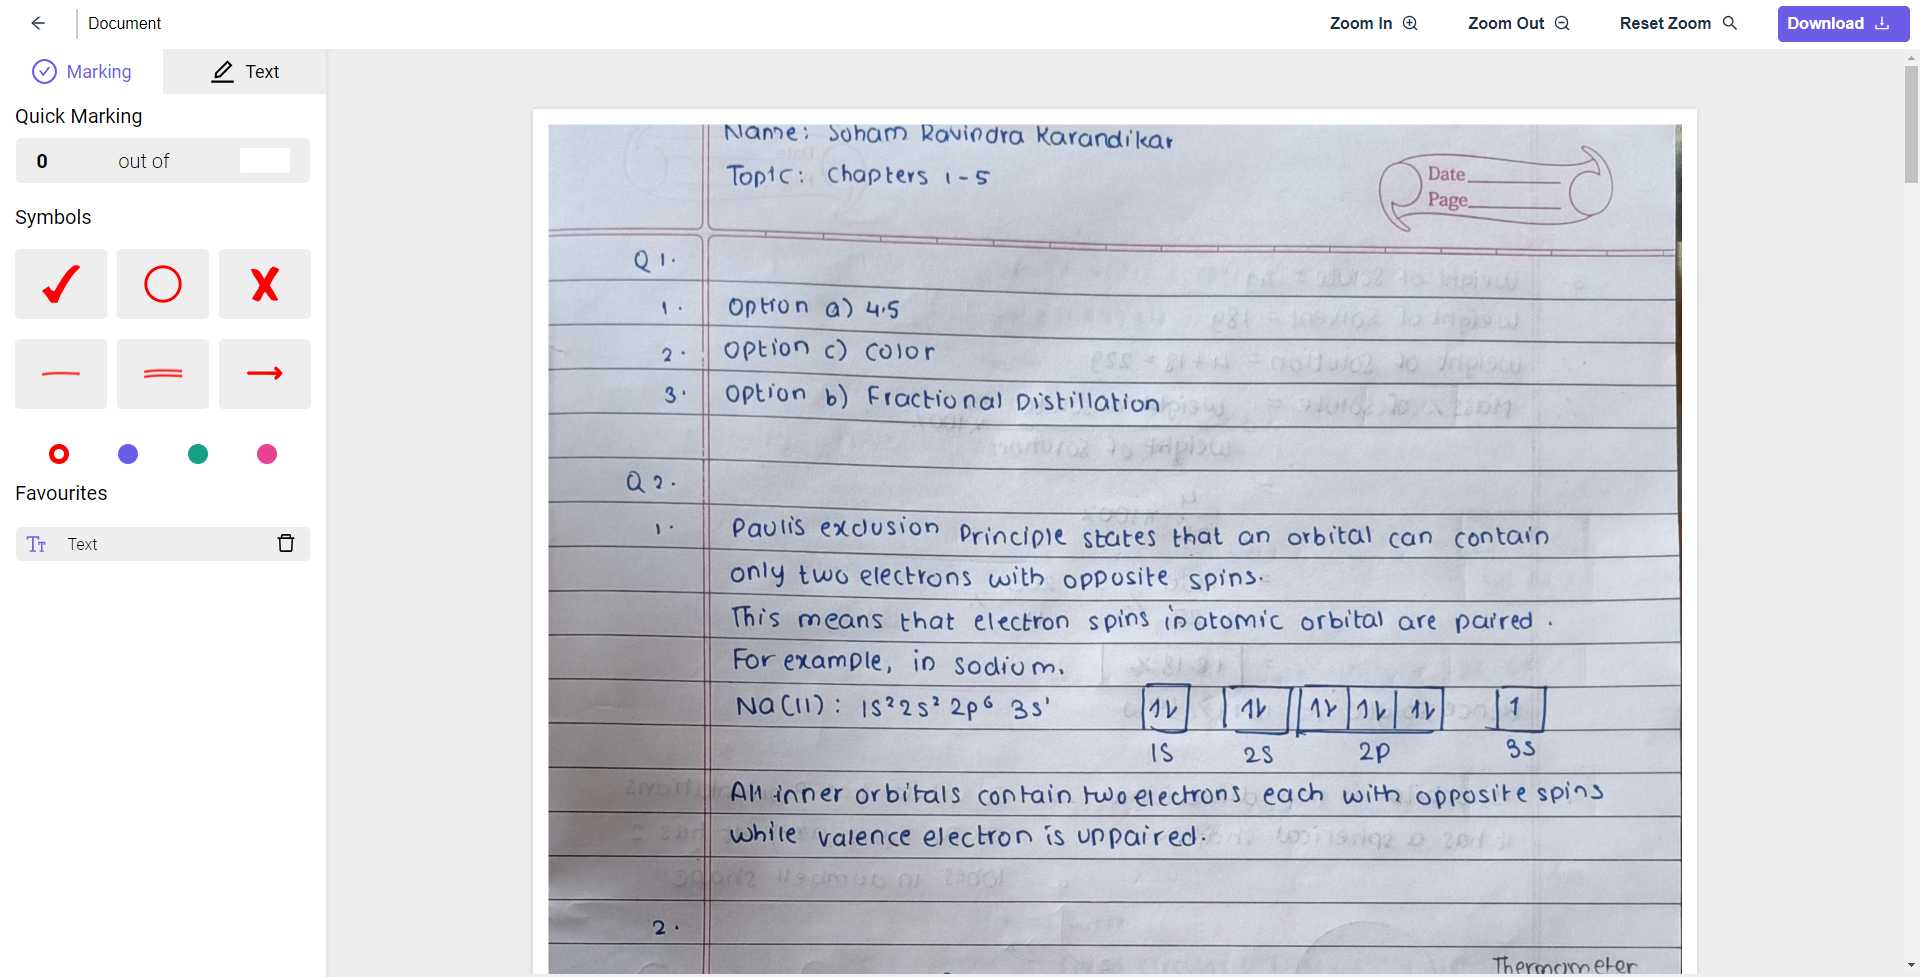 Document
Zoom In
Zoom Out
Reset Zoom
Download
Marking
Text
Quick Marking
0 out of
Symbols
Favourites
Tт Text
Name: Soham Ravindra Karandikar
Topic: Chapters 1-5
Date
Page
Q1.
1. Option a) 4.5
2. Option c) Color
3. Option b) Fractional Distillation
Q2.
1. Paulis exclusion Principle states that an orbital can contain
only two electrons with opposite spins.
This means that electron spins in atomic orbital are paired.
For example, in sodium.
Na(11): 1S² 2S² 2p⁶ 3s¹ 1↿⇂ 
1S 2S 2P 3S
All inner orbitals contain two electrons each with opposite spins
while valence electron is unpaired.
2.
Thermometer